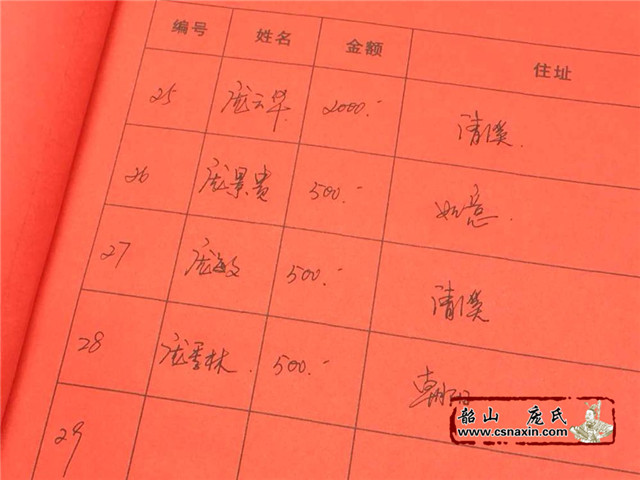 编号 姓名 金额 住址
25 庞云华 2000.- 清溪.
26 庞景贵 500.- 如意.
27 庞敏 500.- 清溪
28 庞秀林. 500.- 朝阳
29
韶山 庞氏
www.csnaxin.com